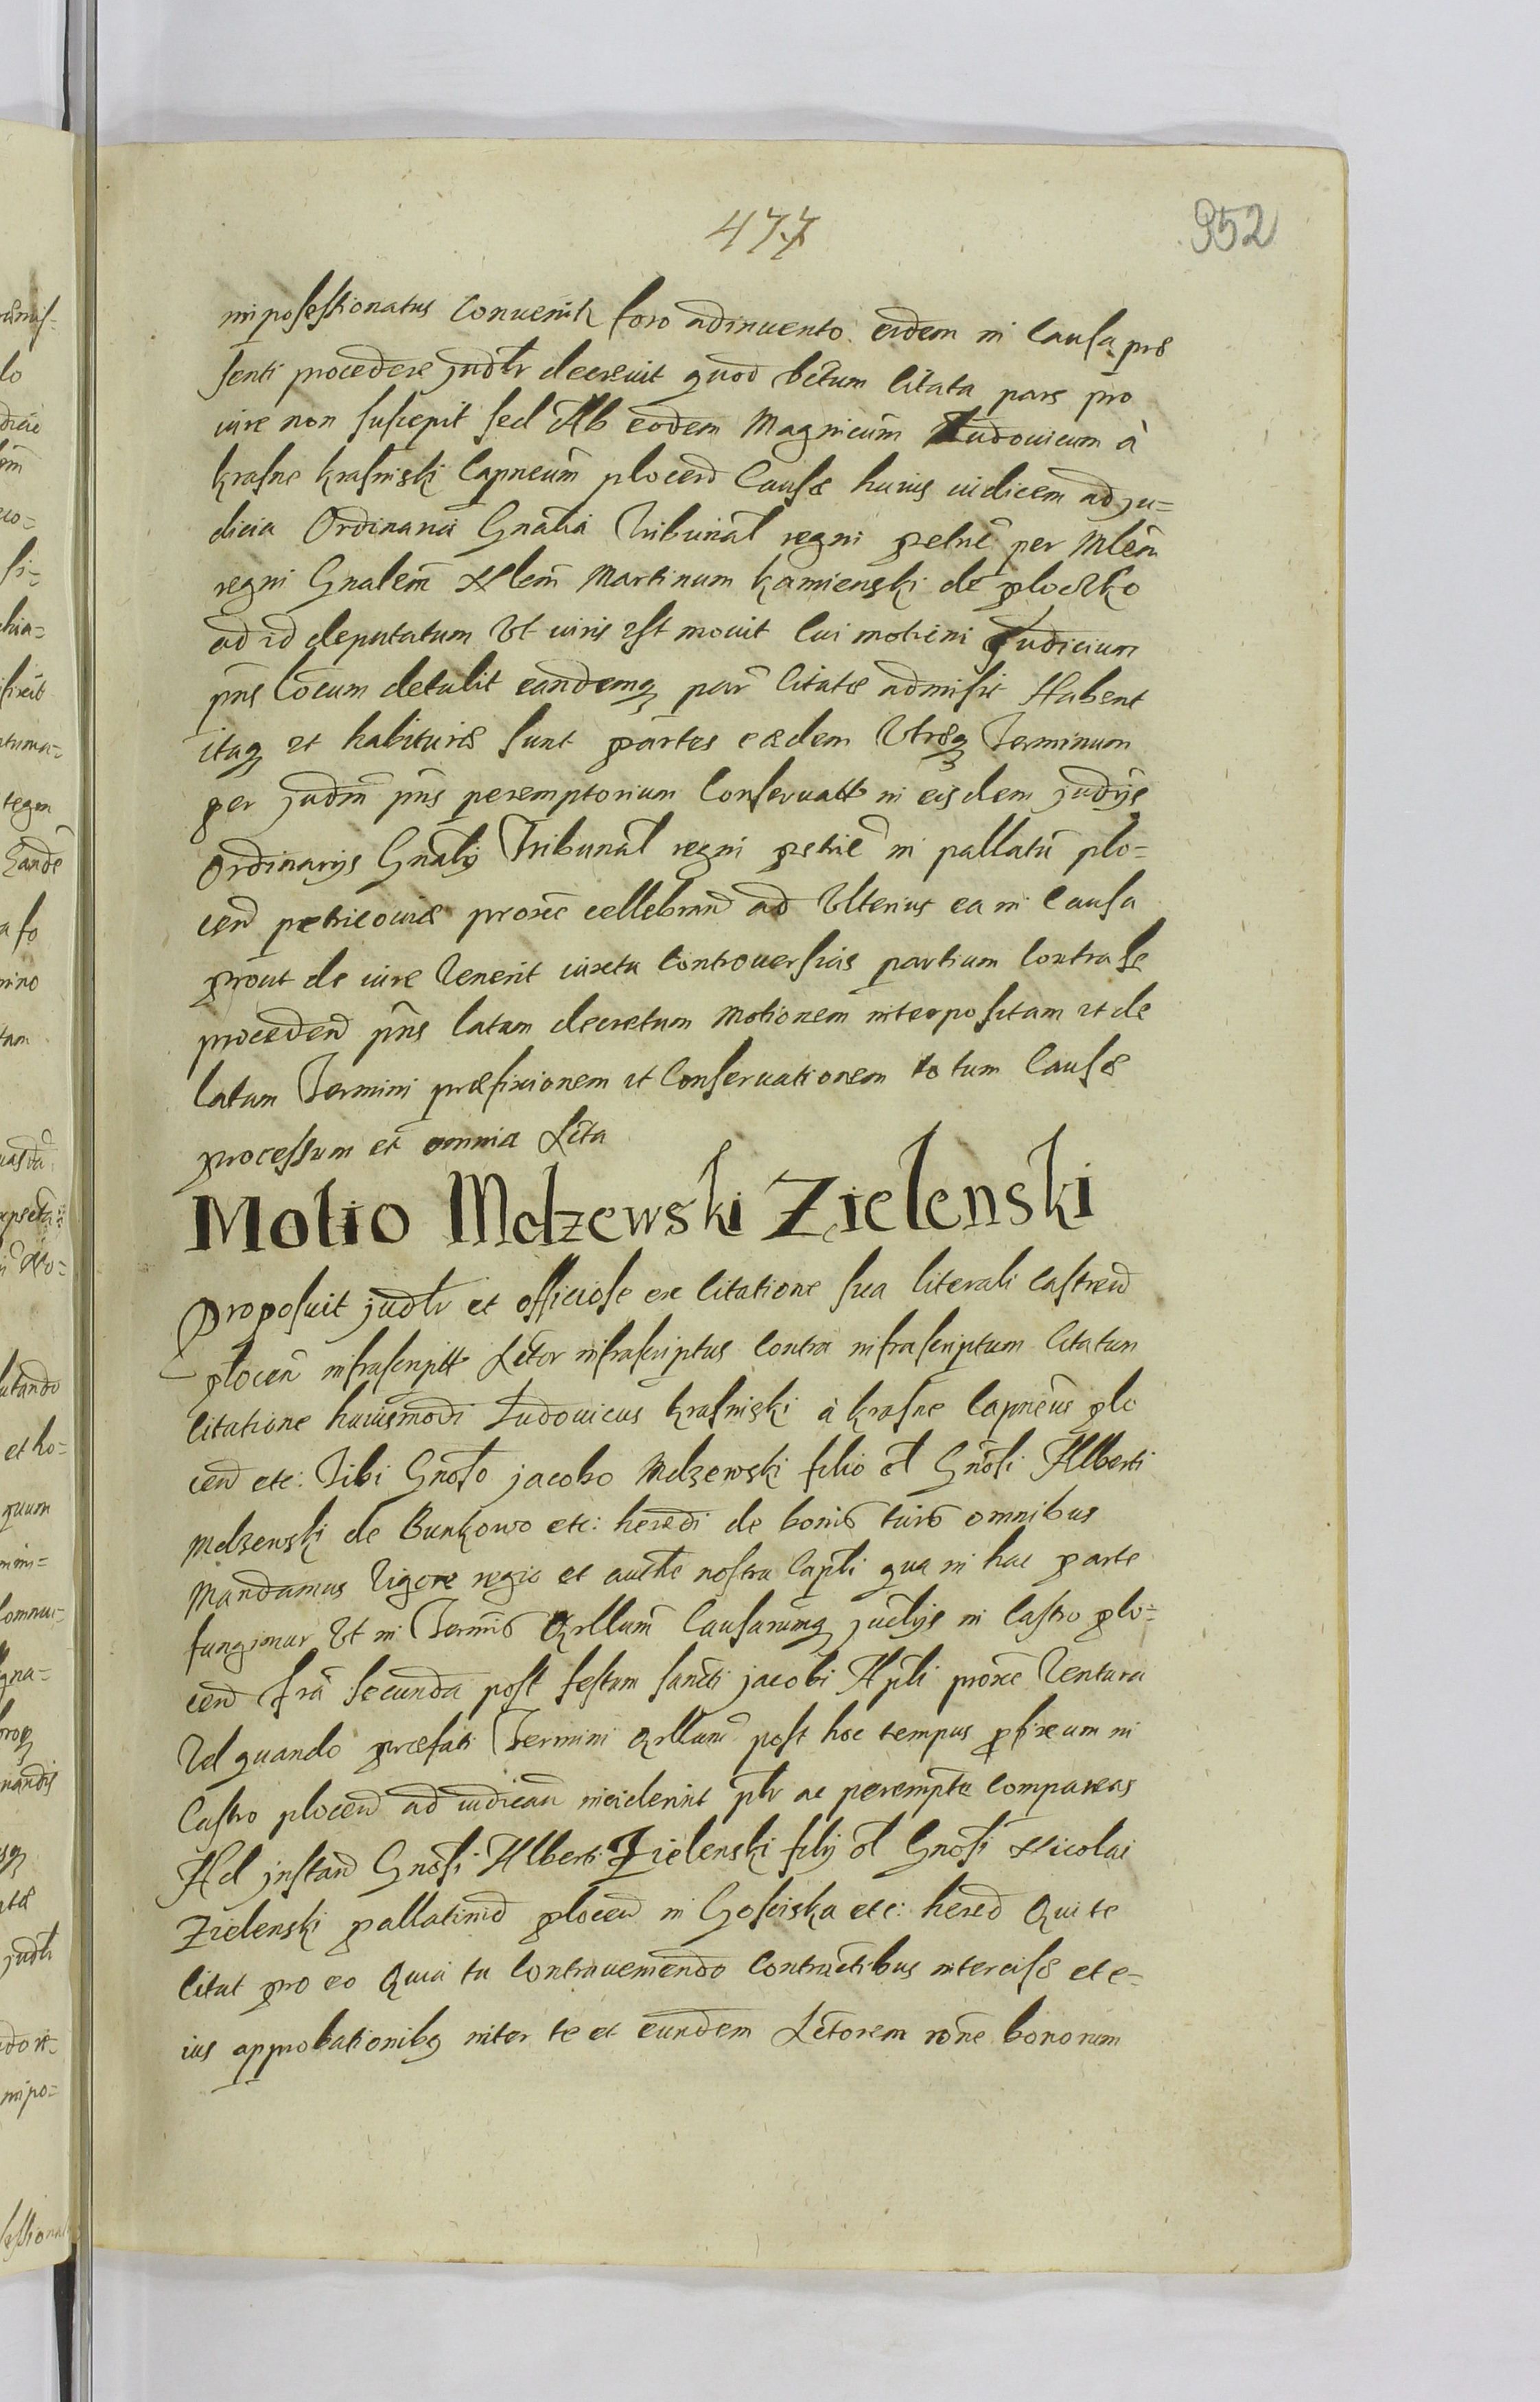 477
352
impossessionatus Conuenit foro adinuento eidem in Causa præ
senti procedere judtr decreuit quod dictum Citata pars pro
iure non suscepit sed Ab eodem Magnicum Ludouicum à
krasne krasniski Capneum plocen Causæ huius iudicem ad ju=
dicia Ordinaria Gnalia Tribunal regni petric per Mlem
regni Gnalem Nlem Martinum kamienski de ploczko
ad id deputatum Vt iuris est mouit Cui motioni Judicium
pns locum detulit eandemq par Citatæ admisit Habent
itaq et habituræ sunt partes eædem Vtræq Terminum
per judm pns peremptorium Conseruatt in eisdem judijs
Ordinarijs Gnalij Tribunal regni petric in pallatu plo=
cen petricouiæ proxe cellebran ad Vlterius ea in Causa
prout de iure Venerit iuxta Controuersias partium Contra se
proceden pns latum decretum Motionem interpositam et de
latum Termini præfixionem et Conseruationem totum Causæ
processum et omnia Lcta
Motio Mdzewski Zielenski
Proposuit judtr et officiose ex Citatione sua literali Castren
plocen infrascriptt Lctor infrascriptus Contra infrascriptum Citatum
Citatione huiusmodi Ludouicus krasniski à krasne Capneus plo
cen etc: Tibi Gnoso jacobo Mdzewski filio ol Gnosi Alberti
Mdzewski de Bunkowo etc: heredi de bonis tuis omnibus
Mandamus Vigore regio et aucthe nostra Captli qua in hac parte
fungimur Vt in Termis Qrllum Causarumq judijs in Castro plo=
cen fria secunda post festum sancti jacobi Apli proxe Ventura
Vel quando præfati Termini Qrllum post hoc tempus pfixum in
Castro plocen ad iudican inciderint pltr ac peremptæ Compareas
Ad jnstan Gnosi Alberti Zielenski filij ol Gnosi Nicolai
Zielenski pallatinid plocen in Gosciska etc: hered Qui te
Citat pro eo Quia tu Contraueniendo Contractibus intercisæ et e=
ius approbationibq inter te et eundem Lctorem rone bonorum